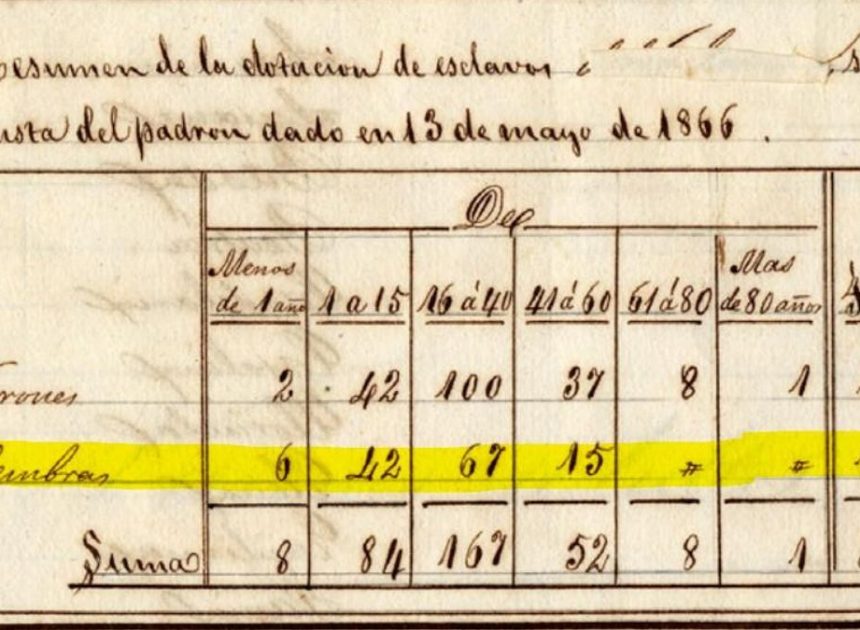 resumen de la dotacion de esclavos
del padron dado en 13 de mayo de 1866 .
De
Menos de 1 año 1 a 15 16 á 40 41 á 60 61 á 80 Mas de 80 años
rones 2 42 100 37 8 1
embras 6 42 67 15 〃 〃
Suma 8 84 167 52 8 1